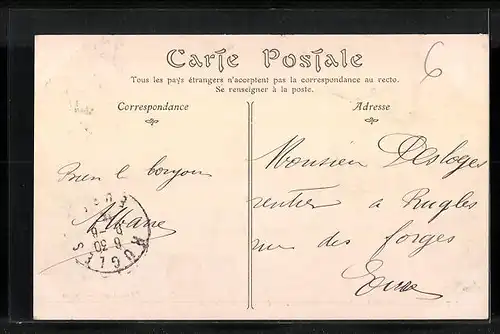 Carte Postale
Tous les pays étrangers n'acceptent pas la correspondance au recto.
Se renseigner à la poste.
6
Correspondance
Adresse
Bien le bonjour
Albane
EURE
6 30
RUGLES
Monsieur Desloges
rentier a Rugles
rue des forges
Eure